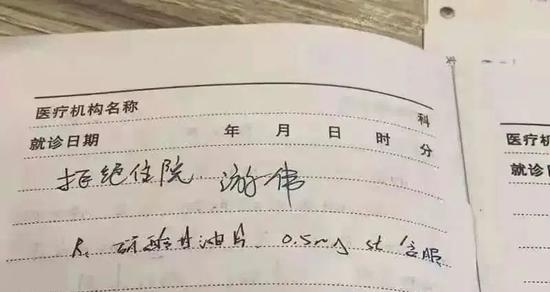 医疗机构名称 科
就诊日期 年 月 日 时 分
拒绝住院 游伟
R: 硝酸甘油片 0.5mg st 含服
医疗机构
就诊日期